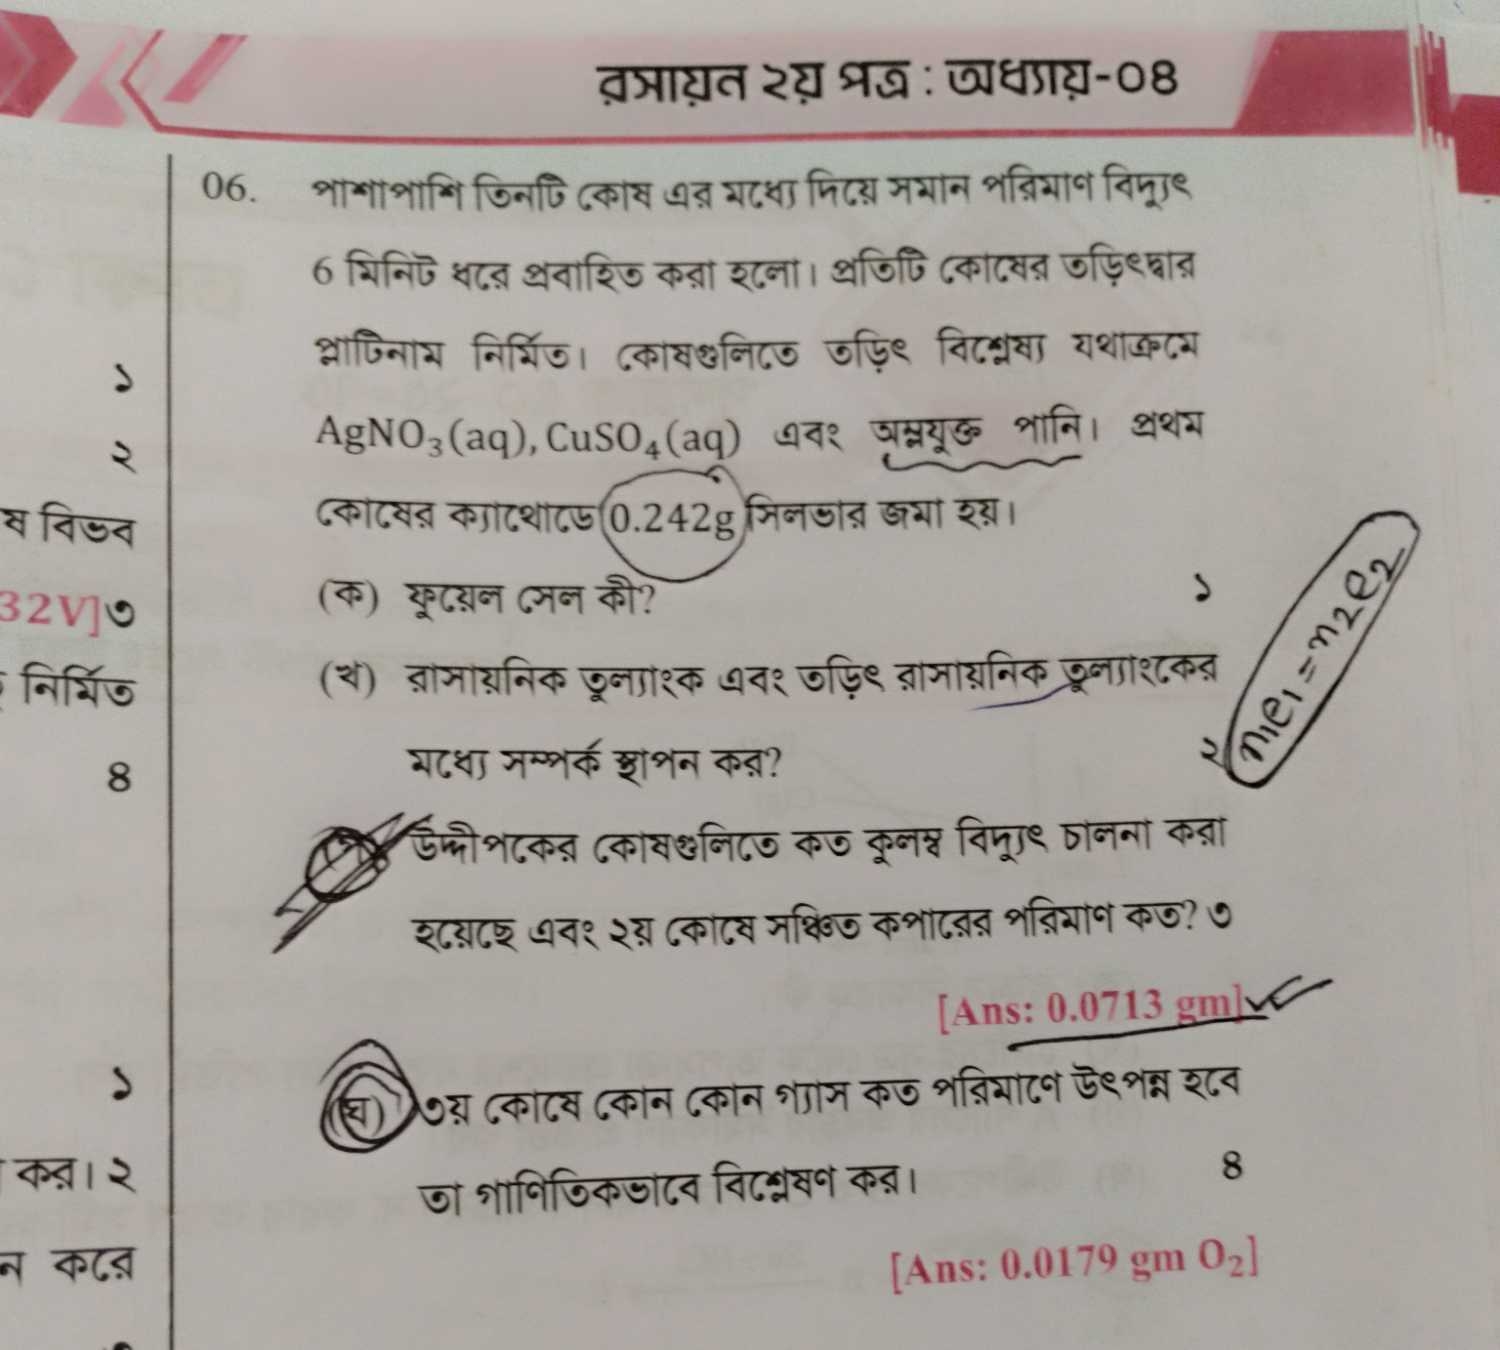 রসায়ন ২য় পত্র : অধ্যায়-০৪
06. পাশাপাশি তিনটি কোষ এর মধ্যে দিয়ে সমান পরিমাণ বিদ্যুৎ
6 মিনিট ধরে প্রবাহিত করা হলো। প্রতিটি কোষের তড়িৎদ্বার
প্লাটিনাম নির্মিত। কোষগুলিতে তড়িৎ বিশ্লেষ্য যথাক্রমে
AgNO₃(aq), CuSO₄(aq) এবং অম্লযুক্ত পানি। প্রথম
কোষের ক্যাথোডে 0.242g সিলভার জমা হয়।
(ক) ফুয়েল সেল কী? ১
(খ) রাসায়নিক তুল্যাংক এবং তড়িৎ রাসায়নিক তুল্যাংকের
মধ্যে সম্পর্ক স্থাপন কর? ২
n₁e₁ = n₂e₂
উদ্দীপকের কোষগুলিতে কত কুলম্ব বিদ্যুৎ চালনা করা
হয়েছে এবং ২য় কোষে সঞ্চিত কপারের পরিমাণ কত? ৩
[Ans: 0.0713 gm]
(ঘ) ৩য় কোষে কোন কোন গ্যাস কত পরিমাণে উৎপন্ন হবে
তা গাণিতিকভাবে বিশ্লেষণ কর। ৪
[Ans: 0.0179 gm O₂]
১
২
ষ বিভব
32V]৩
নির্মিত
৪
১
কর। ২
ন করে